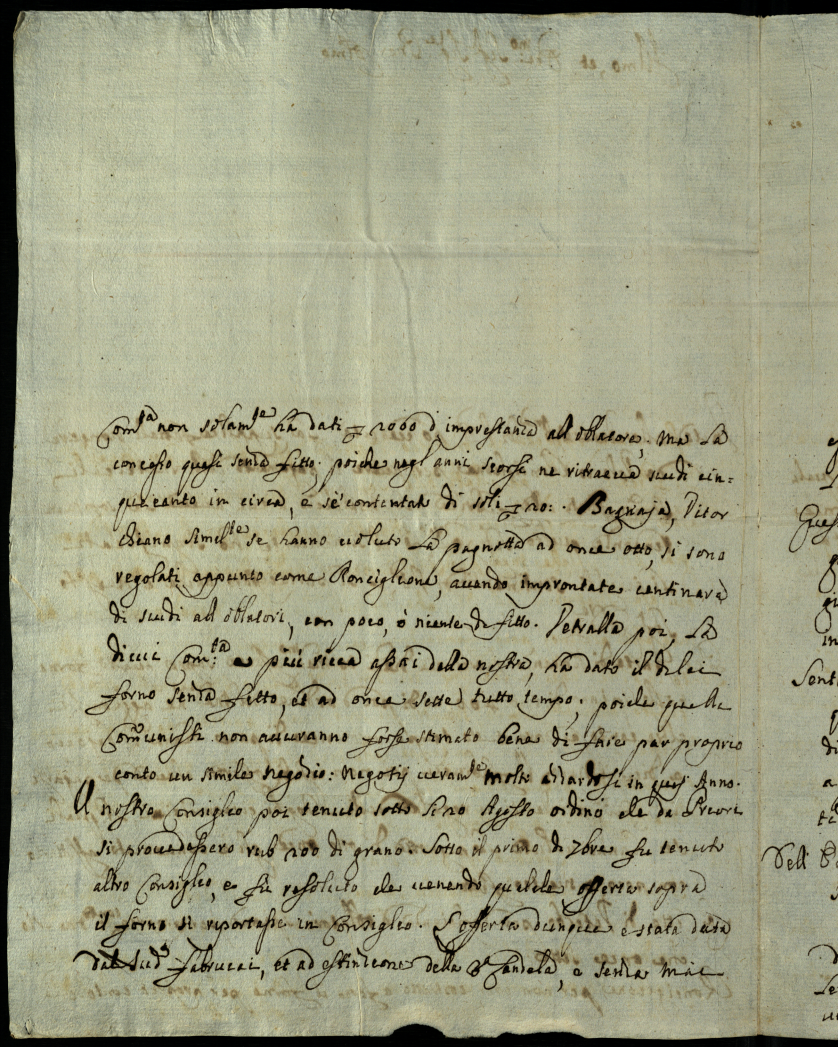 Com.tà non solam.te ha dati 1060 d'imprestanza all'oblatore, ma La
concesso quasi senza fitto; poiche negl'anni scorsi ne ritraeva scudi cin=
quecento in circa, e s'è contentata di soli 20: . Bagnaja, Vitor
chiano simil.te se hanno voluto La pagnotta ad once otto, si sono
regolati appunto come Ronciglione, avendo improntate centinara
di scudi all'oblatori, con poco, ò niente di fitto. Vetralla poi, La
di cui Com.tà e più ricca assai della nostra, ha dato il di lei
forno senza fitto, et ad once sette tutto tempo; poiche quelli
Comunisti non averanno forse stimato bene di fare per proprio
conto un simile negozio: Negotij veram.te molto azzardosi in quest'Anno.
Il nostro Consiglio poi tenuto sotto li 20 Agosto ordinò che da Priori
si provedessero rub 200 di grano. Sotto il primo di 7bre fu tenuto
altro Consiglio, e fu resoluto che venendo qualche offerta sopra
il forno si riportasse in Consiglio. L'offerta dunque è stata data
dal Sud.o Fabrucci, et ad estinzione della Candela, e senza mia